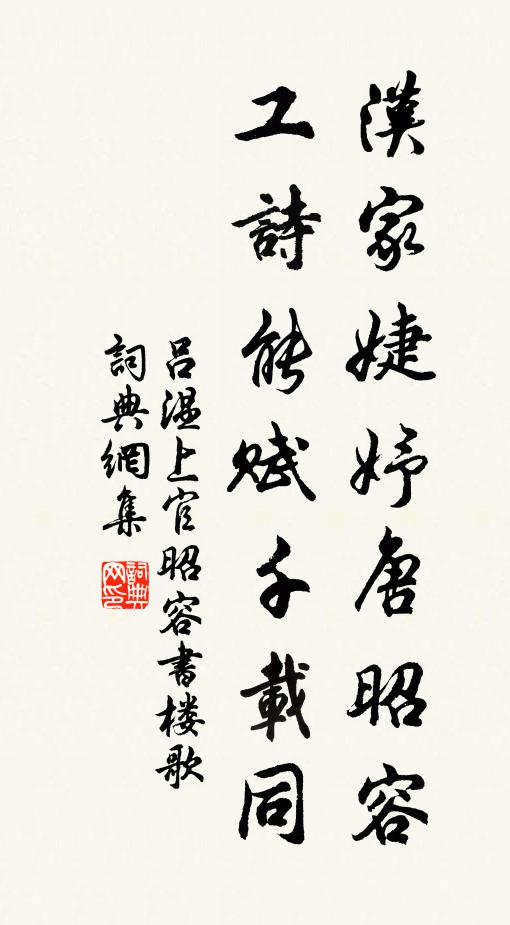 漢家婕妤唐昭容
工詩能賦千載同
呂溫上官昭容書楼歌
詞典網集
詞典网印